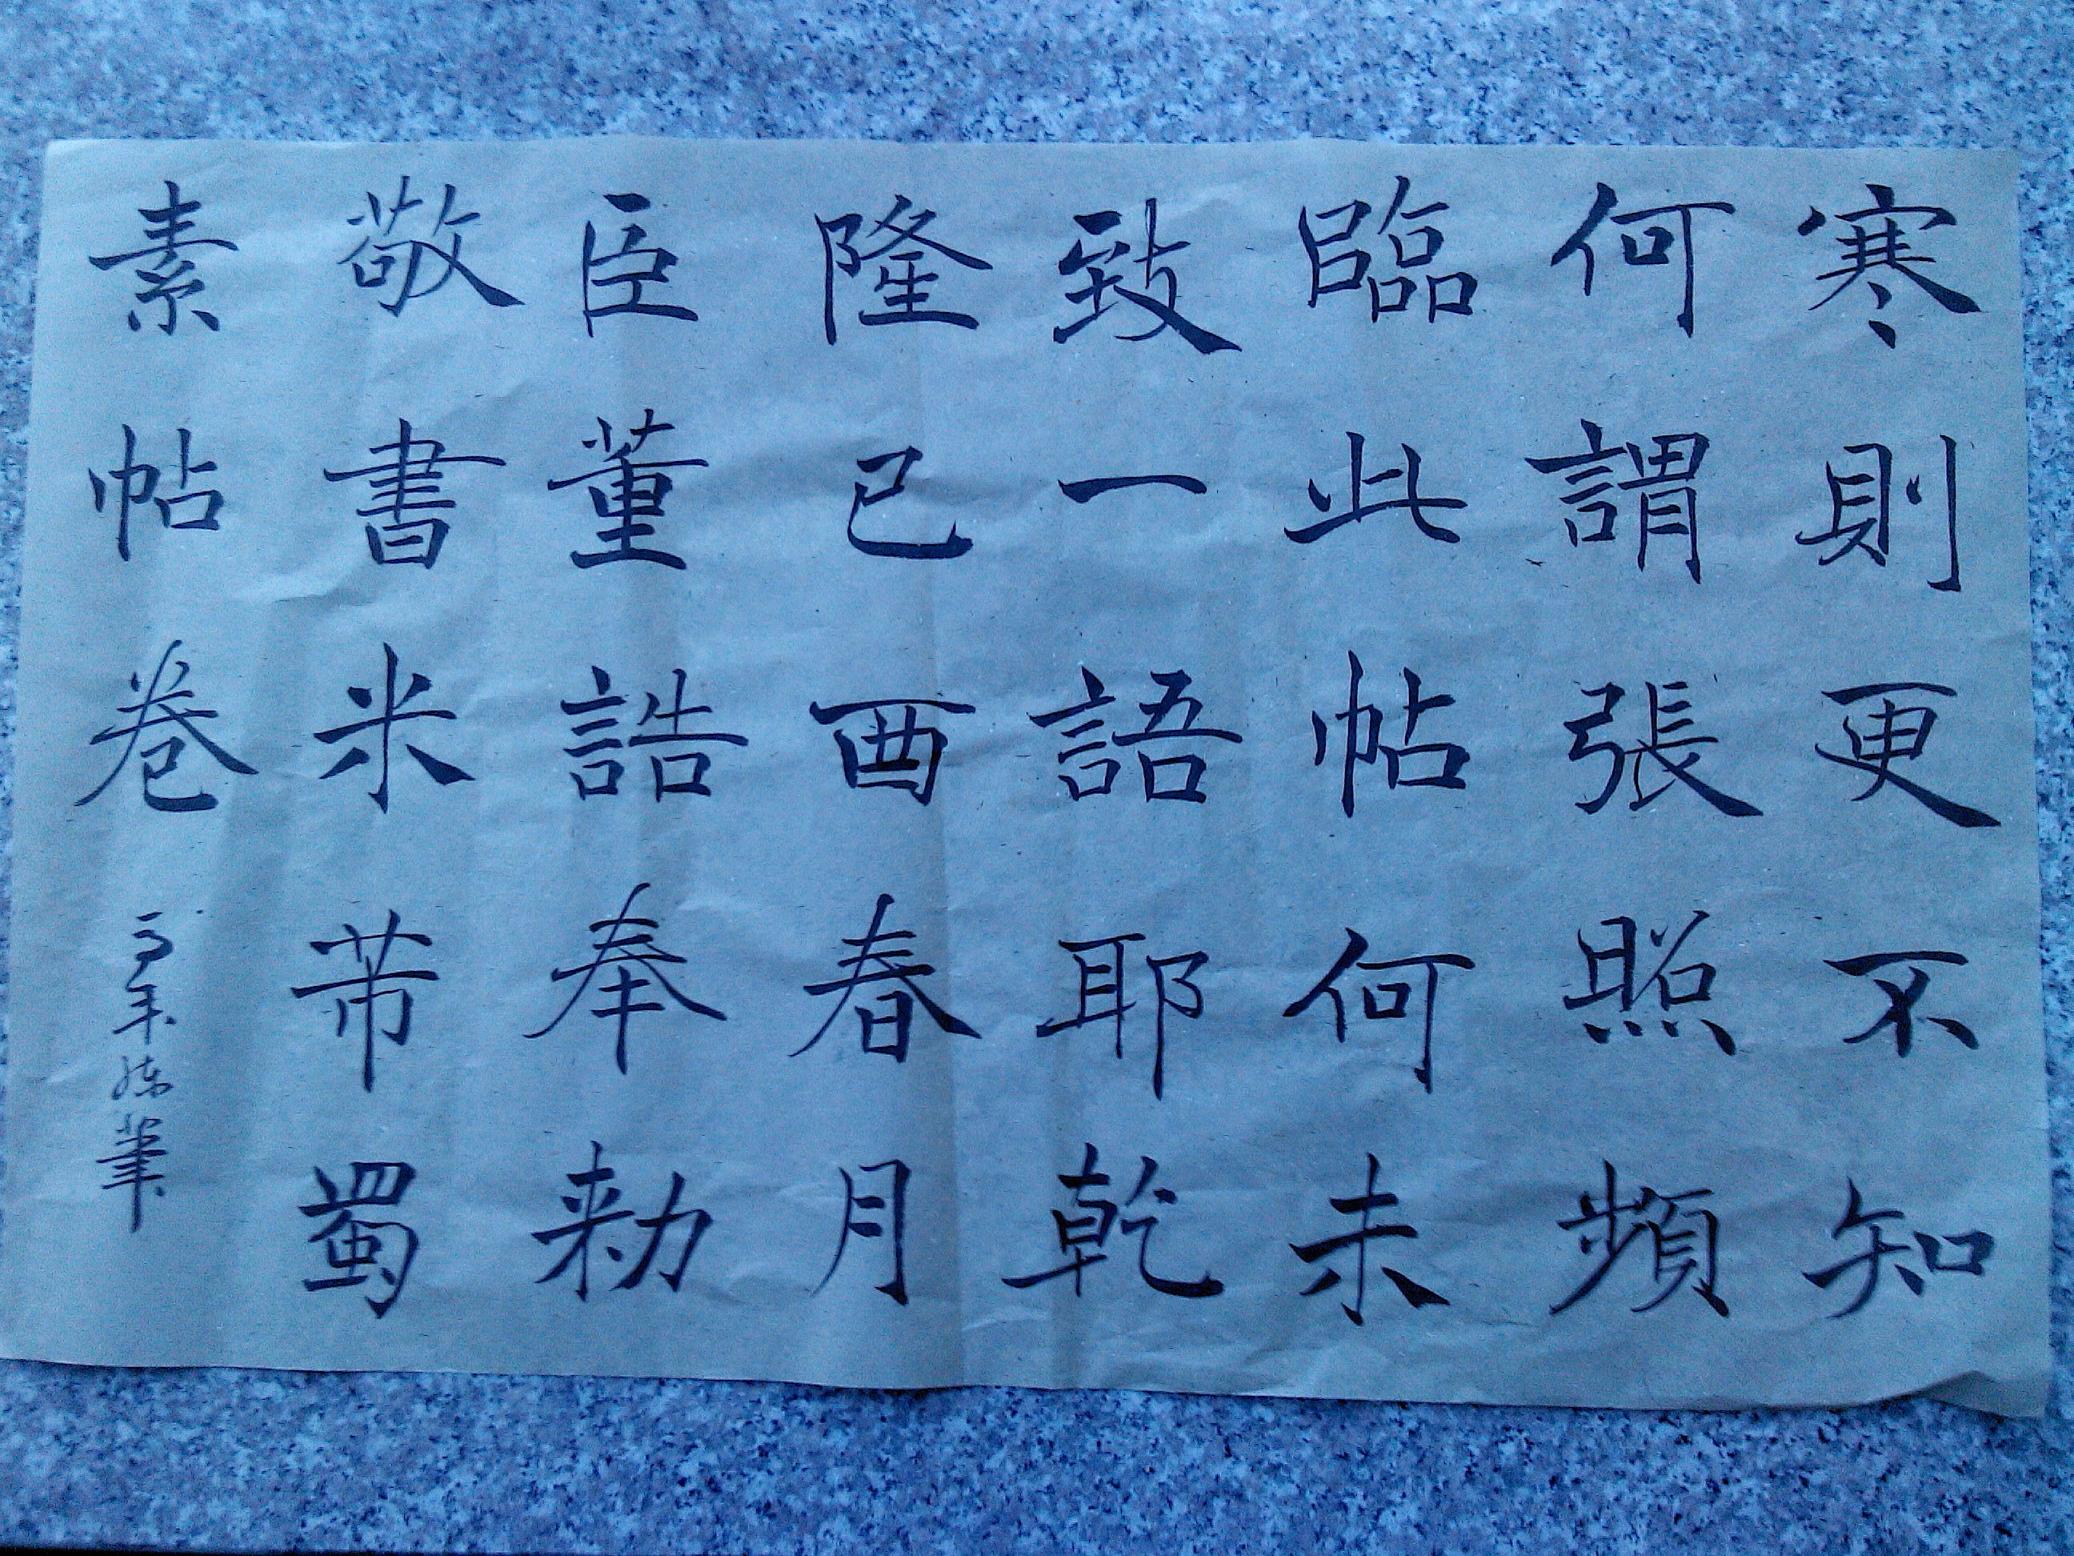 寒則更不知
何謂張照頻
臨此帖何未
致一語耶乾
隆己酉春月
臣董誥奉勅
敬書米芾蜀
素帖卷